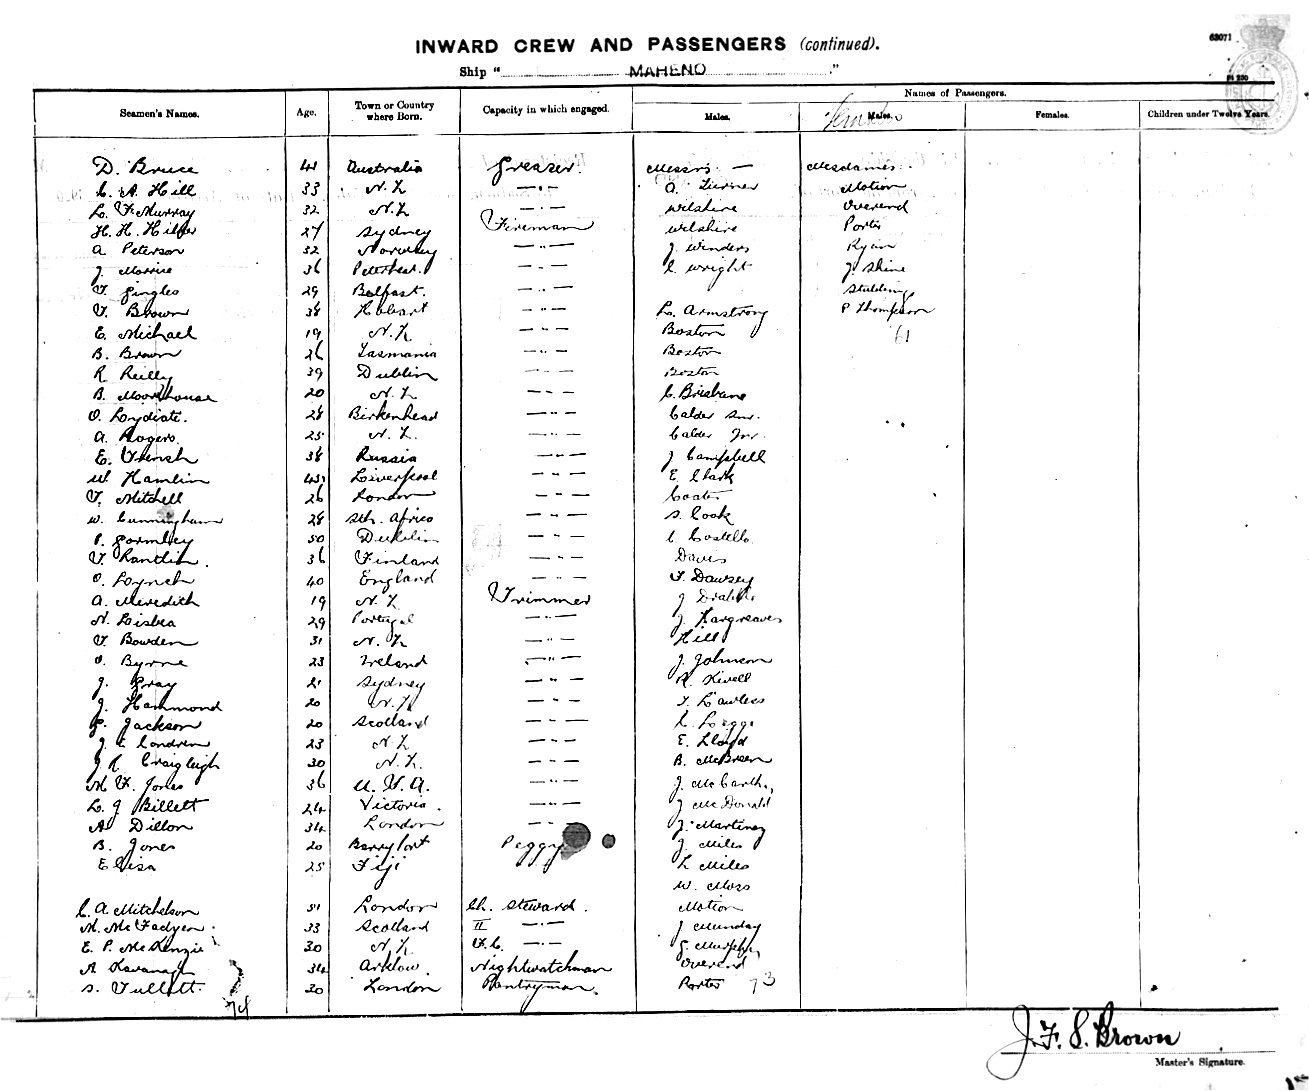 63071
INWARD CREW AND PASSENGERS (continued).
Ship " MAHENO "
Names of Passengers.
Seamen's Names. Age. Town or Country where Born. Capacity in which engaged. Males. Males. Females. Children under Twelve Years.
D. Bruce 41 Australia Greaser. Messrs — Mesdames
C. A. Hill 33 N. Z. — " — A. Turner Motion
L. F. Murray 32 N. Z. — " — Wilshire Overend
H. H. 27 Sydney Fireman Wilshire Porter
A Peterson 32 Norway — " — J. Winders Ryan
J. 36 — " — C. Wright J. Shine
F. Gingles 29 Belfast. — " —
F. Brown 38 Hobart — " — L. Armstrong P Thompson
E. Michael 19 N. Z. — " — Boston 61
B. Brown 26 Tasmania — " — Boston
R Reilly 39 Dublin — " — Boston
B. Moorhouse 20 N. Z. — " — C. Brisbane
O. Lydiate. 28 Birkenhead — " — Calder Snr.
A. Rogers. 25 N. Z. — " — Calder Jnr.
E. 38 Russia — " — J Campbell
W. Hamlin 43 Liverpool — " — E. Clark
F. Mitchell 26 London — " — Coates
W. Cunningham 28 Sth. Africa — " — S. Cook
P. Gormley 50 Dublin — " — C Costello
F. Rantlin. 36 Finland — " — Davis
O. Lynch 40 England — " — F. Dawsey
A. Meredith 19 N. Z. Trimmer J
N. Lisbea 29 Portugal — " — J. Hargreaves
F. Bowden 31 N. Z. — " — Hill
O. Byrne 23 Ireland — " — J. Johnson
J. Gray 21 Sydney — " — R. Kivell
J. Hammond 20 N. Z. — " — F. Lawless
P. Jackson 20 Scotland — " — C. Legge
J. C. Condren 23 N. Z. — " — E. Lloyd
J R Craigleigh 30 N. Z. — " — B. McBreen
M. F. Jones 36 U. S. A. — " — J. McCarthy
L. J Billett 24 Victoria. — " — J McDonald
A Dillon 34 London — " — J. Martinez
B. Jones 20 Barryport Peggy J. Miles
Elisa 25 Fiji L Miles
W. Moss
C. A. Mitchelson 51 London Ch. Steward. Motion
M. McFadyen. 33 Scotland II — " — J Munday
E. P. McKenzie 30 N. Z. F. C. — " — G. Murphy
A Kavanagh 34 Arklow. Nightwatchman Overend
S. Tullett. 30 London Pantryman. Porter 73
74
J. F. S. Brown
Master's Signature.